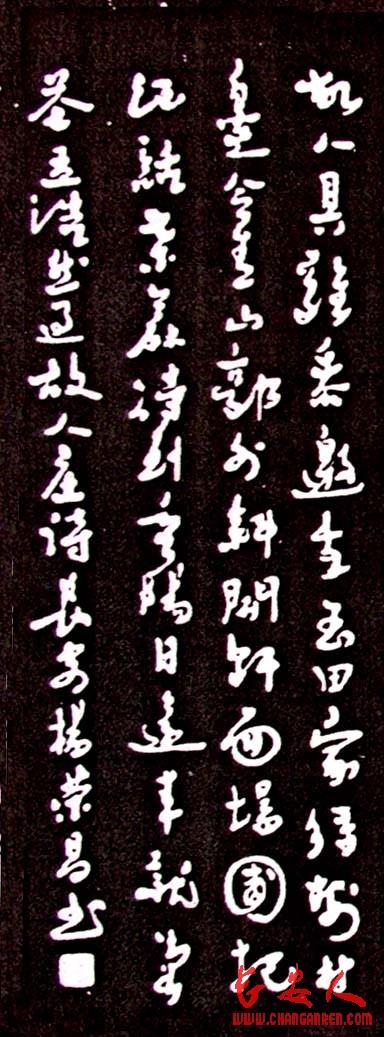 故人具雞黍邀我至田家绿樹村
邊合青山郭外斜開軒面場圃把
酒話桑麻待到重陽日還来就菊
花孟浩然过故人庄诗長安楊榮昌书
长安人
WWW.CHANGANREN.COM